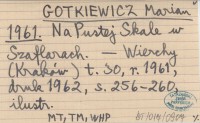 GOTKIEWICZ Marian
1961. Na Pustej Skale w
Szaflarach. — Wierchy
(Kraków) t. 30, r. 1961,
druk 1962, s. 256-260,
ilustr.
MT, TM, WHP